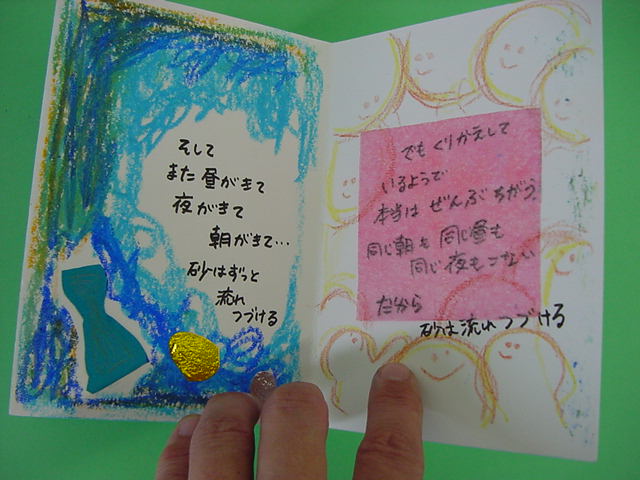 そして
また昼がきて
夜がきて
朝がきて…
砂はずっと
流れ
つづける
でもくりかえして
いるようで
本当はぜんぶちがう。
同じ朝も同じ昼も
同じ夜もこない
だから
砂は流れつづける